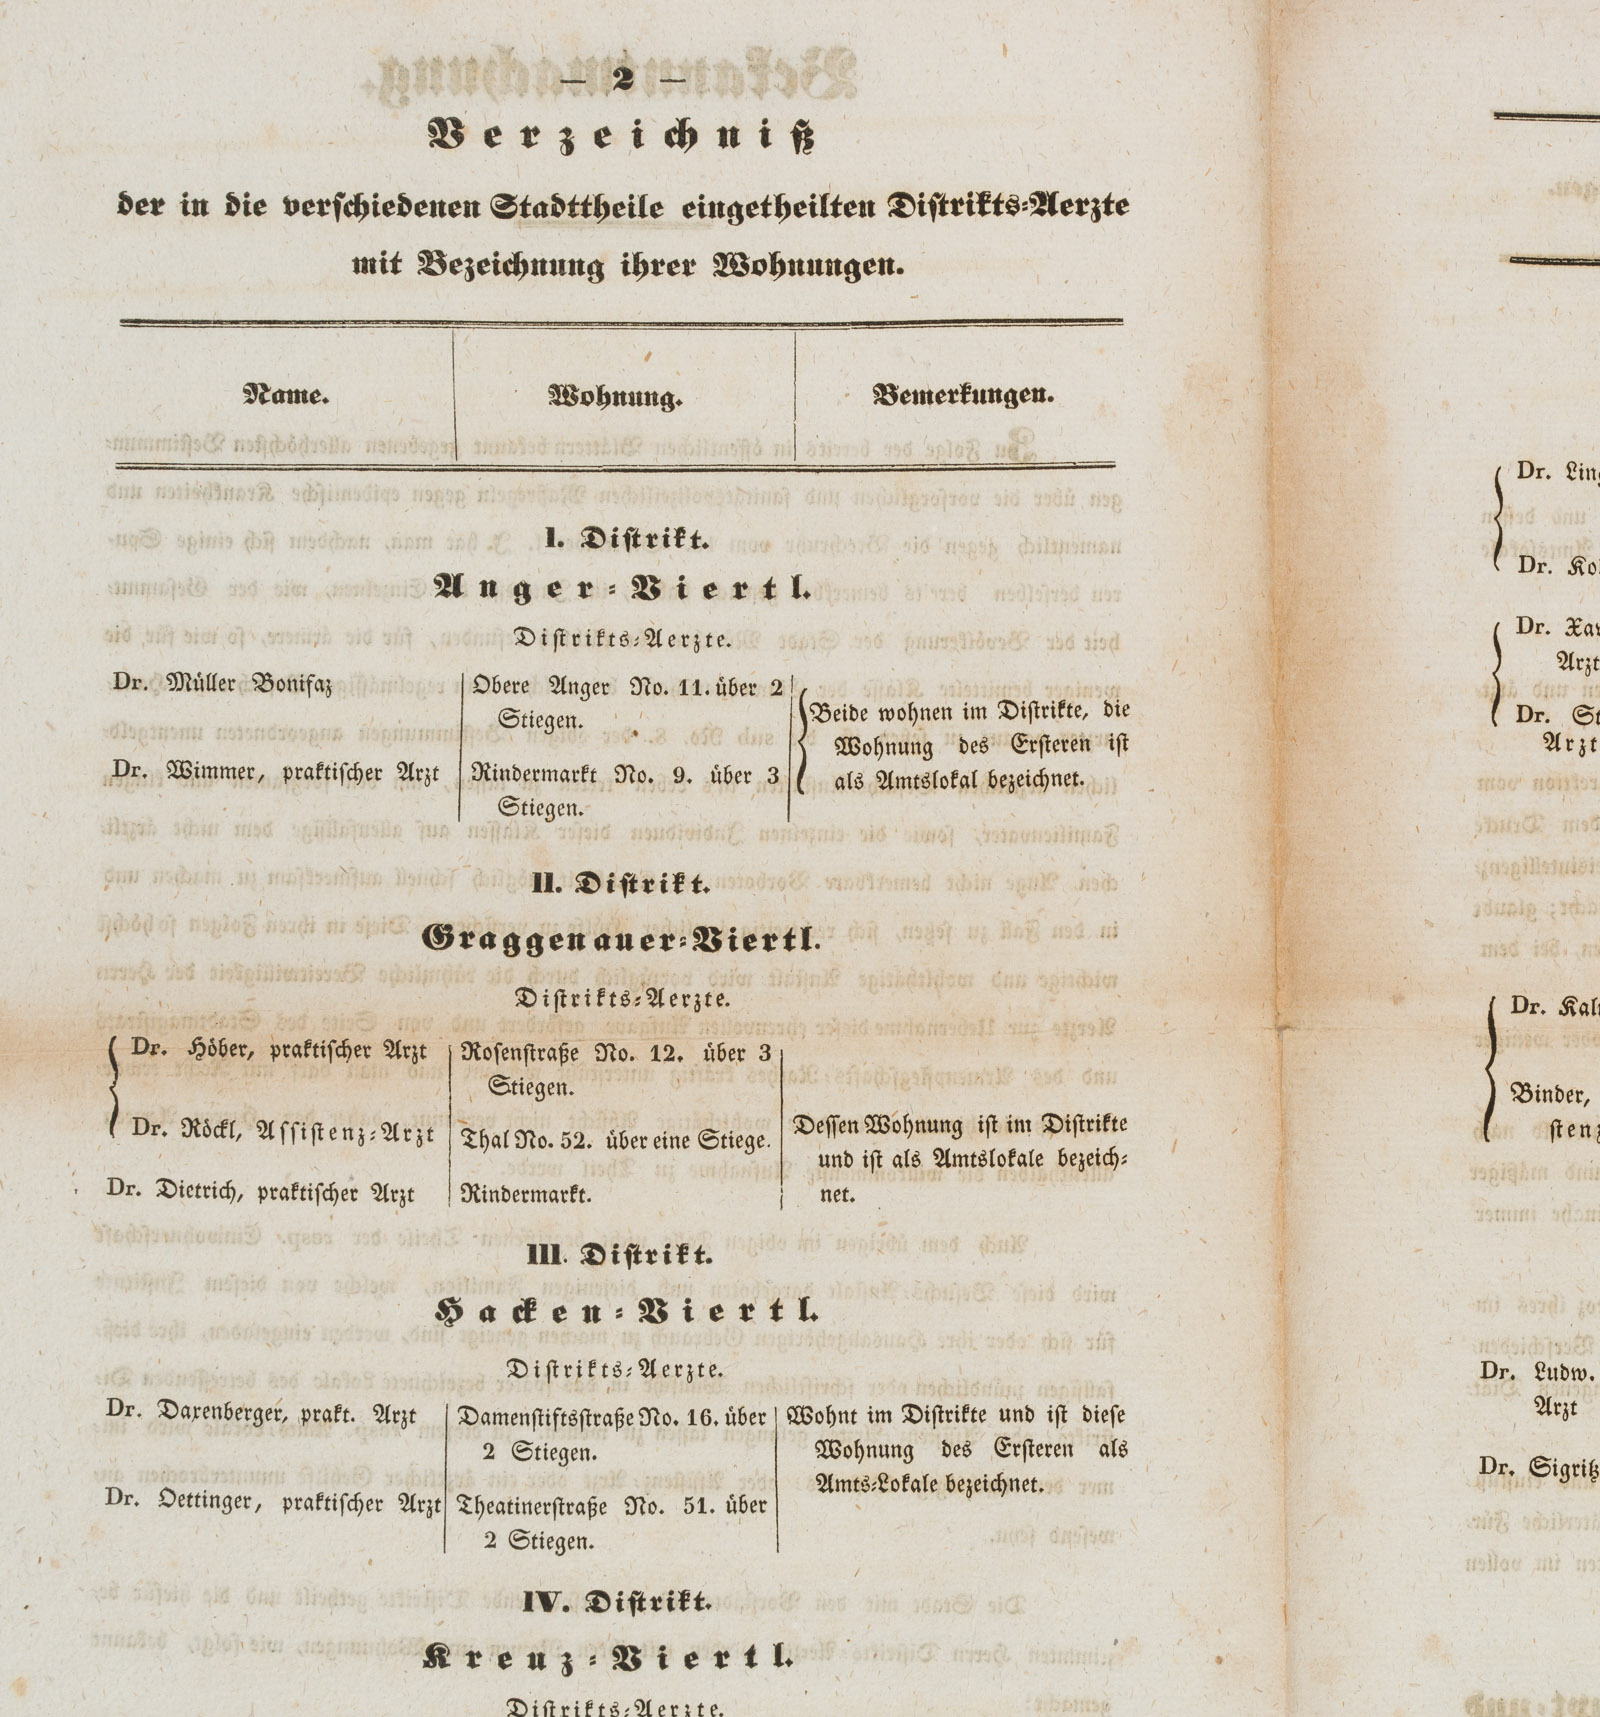 — 2 —
Verzeichniß
der in die verschiedenen Stadttheile eingetheilten Distrikts=Aerzte
mit Bezeichnung ihrer Wohnungen.
Name. Wohnung. Bemerkungen.
I. Distrikt.
Anger=Viertl.
Distrikts=Aerzte.
Dr. Müller Bonifaz
Obere Anger No. 11. über 2
Stiegen.
Dr. Wimmer, praktischer Arzt
Rindermarkt No. 9. über 3
Stiegen.
Beide wohnen im Distrikte, die
Wohnung des Ersteren ist
als Amtslokal bezeichnet.
II. Distrikt.
Graggenauer=Viertl.
Distrikts=Aerzte.
Dr. Höber, praktischer Arzt
Rosenstraße No. 12. über 3
Stiegen.
Dr. Röckl, Assistenz=Arzt
Thal No. 52. über eine Stiege.
Dr. Dietrich, praktischer Arzt
Rindermarkt.
Dessen Wohnung ist im Distrikte
und ist als Amtslokale bezeich=
net.
III. Distrikt.
Hacken=Viertl.
Distrikts=Aerzte.
Dr. Daxenberger, prakt. Arzt
Damenstiftsstraße No. 16. über
2 Stiegen.
Dr. Oettinger, praktischer Arzt
Theatinerstraße No. 51. über
2 Stiegen.
Wohnt im Distrikte und ist diese
Wohnung des Ersteren als
Amts=Lokale bezeichnet.
IV. Distrikt.
Kreuz=Viertl.
Distrikts=Aerzte.
Dr.
Dr.
Dr.
Arzt
Dr.
Arzt
Dr.
Binder,
Dr. Ludw.
Arzt
Dr.